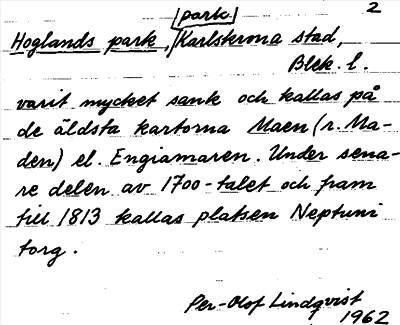 2
Hoglands park, /park/ Karlskrona stad,
Blek. l.
varit mycket sank och kallas på
de äldsta kartorna Maen (r. Ma-
den) el. Engiamaren. Under sena-
re delen av 1700-talet och fram
till 1813 kallas platsen Neptuni
torg.
Per-Olof Lindqvist
1962